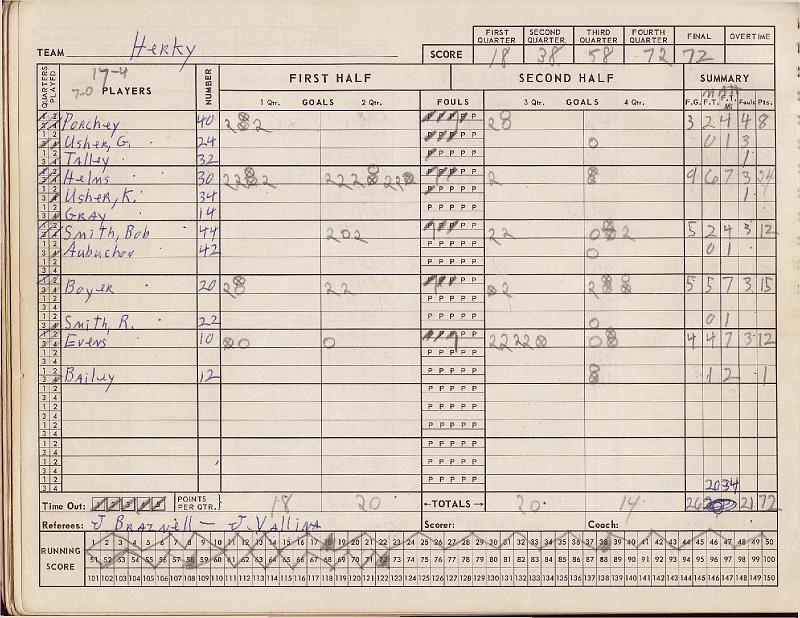 FIRST QUARTER SECOND QUARTER THIRD QUARTER FOURTH QUARTER FINAL OVERTIME
TEAM Herky SCORE 18 38 58 72 72
QUARTERS PLAYED 17-4 7-0 PLAYERS NUMBER FIRST HALF SECOND HALF SUMMARY
1 Qtr. GOALS 2 Qtr. FOULS 3 Qtr. GOALS 4 Qtr. F.G. F.T. F.T. Fouls Pts.
Porchey 40 2 8 2 P P P P P 2 8 3 2 4 4 8
Usher, G. 24 P P P P P 0 0 1 3
Talley 32 P P P P P 1
Helms 30 P P P P P 2 9 6 7 3 24
Usher, K. 34 P P P P P 1
Gray 14 P P P P P
Smith, Bob 44 2 0 2 P P P P P 2 2 5 2 4 3 12
Aubuchon 42 P P P P P 0 0 1
Boyer 20 2 2 P P P P P 2 5 5 7 3 15
Smith, R. 22 P P P P P 0 0 1
Evens 10 0 0 P P P P P 2 2 2 2 4 4 7 3 12
Bailey 12 P P P P P 8 1 2 1
20 34
Time Out: 1 2 3 4 5 POINTS PER QTR. 18 20 ←TOTALS→ 20 14 26 20 21 72
Referees: J Braznell – J. Vallina Scorer: Coach:
RUNNING SCORE
1 2 3 4 5 6 7 8 9 10 11 12 13 14 15 16 17 18 19 20 21 22 23 24 25 26 27 28 29 30 31 32 33 34 35 36 37 38 39 40 41 42 43 44 45 46 47 48 49 50
51 52 53 54 55 56 57 58 59 60 61 62 63 64 65 66 67 68 69 70 71 72 73 74 75 76 77 78 79 80 81 82 83 84 85 86 87 88 89 90 91 92 93 94 95 96 97 98 99 100
101 102 103 104 105 106 107 108 109 110 111 112 113 114 115 116 117 118 119 120 121 122 123 124 125 126 127 128 129 130 131 132 133 134 135 136 137 138 139 140 141 142 143 144 145 146 147 148 149 150